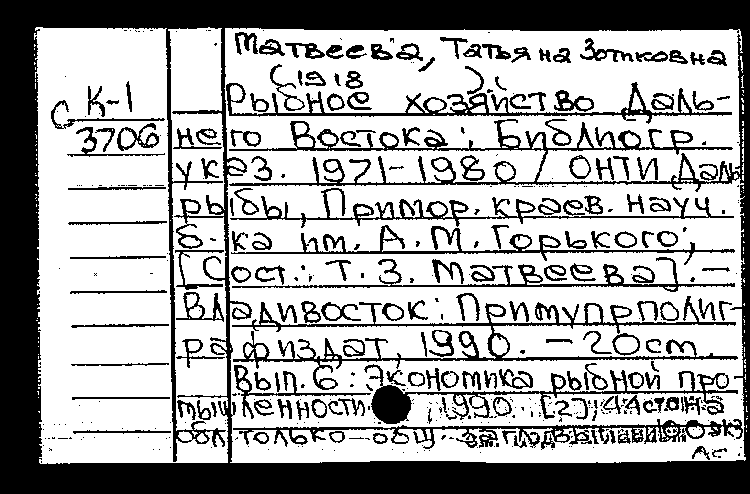 Матвеева, Татьяна Зотиковна
(1918 ).
К-1
С
3706
Рыбное хозяйство Даль-
него Востока: Библиогр.
указ. 1971-1980 / ОНТИ Даль
рыбы, Примор. краев. науч.
б-ка им. А.М. Горького;
[Сост.: Т.З. Матвеева]. —
Владивосток: Примупрполиг-
рафиздат, 1990. — 20см.
Вып. 6: Экономика рыбной про-
мышленности 1990. [2], 44с
обл только общ.
100 экз